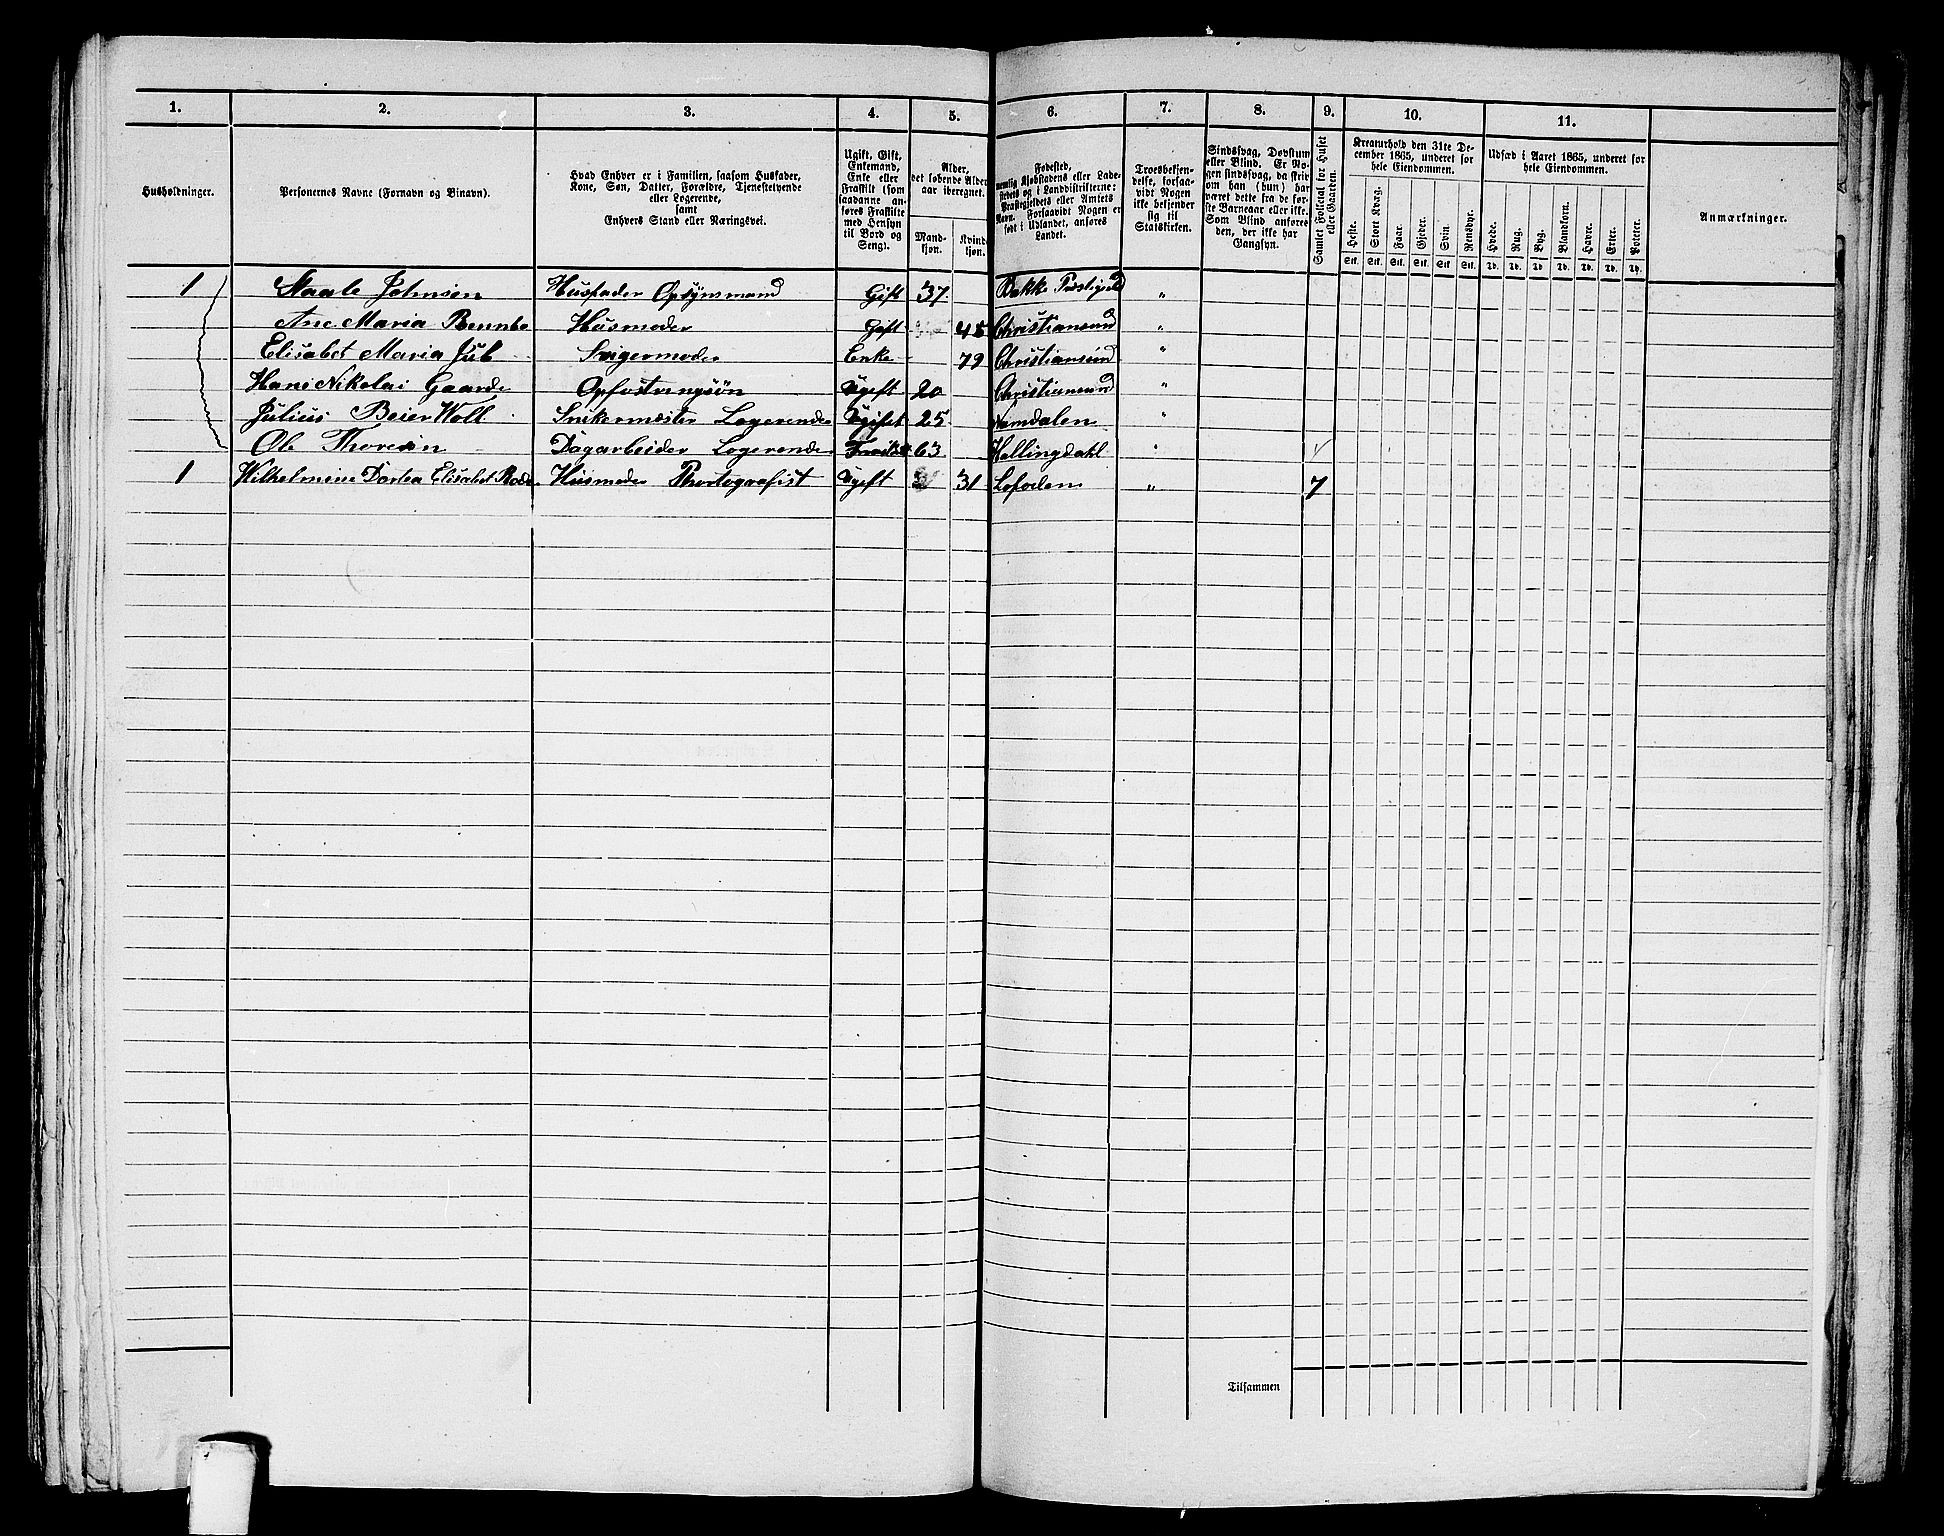 1. 2. 3. 4. 5. 6. 7. 8. 9. 10. 11.
Husholdninger.
Personernes Navne (Fornavn og Binavn).
Hvad Enhver er i Familien, saasom Husfader,
Kone, Søn, Datter, Forældre, Tjenestetyende
eller Logerende,
samt
Enhvers Stand eller Næringsvei.
Ugift, Gift,
Enkemand,
Enke eller
Fraskilt (som
saadanne anføres
Fraskilte
med Hensyn
til Bord og
Seng).
Alder,
det løbende Alders
aar iberegnet.
Mandkjøn.
Kvindkjøn.
Fødested,
nemlig Kjøbstadens eller Ladestedets
og i Landdistrikterne:
Præstegjeldets eller Amtets
Navn. Forsaavidt Nogen er
født i Udlandet, anføres
Landet.
Troesbekjendelse,
forsaavidt
Nogen
ikke bekjender
sig til
Statskirken.
Sindssvag, Døvstum
eller Blind. Er Nogen
sindssvag, da skrives
om han (hun) har
været dette fra de første
Barneaar eller ikke.
Som Blind anføres
den, der ikke har
Gangsyn.
Samlet Folketal for Huset
eller Gaarden.
Kreaturhold den 31te December
1865, underet for
hele Eiendommen.
Heste. Stort Kvæg. Faar. Gjeder. Svin. Rensdyr.
Stk. Stk. Stk. Stk. Stk. Stk.
Udsæd i Aaret 1865, underet for
hele Eiendommen.
Hvede. Rug. Byg. Blandkorn. Havre. Erter. Poteter.
Td. Td. Td. Td. Td. Td. Td.
Anmærkninger.
1 Staale Johnsen Husfader Opsynsmand Gift 37. Bakke Præstigield "
Ane Maria Husmoder Gift 45 Christiansund "
Elisabet Maria Jul Svigermoder Enke 79 Christiansund "
Hans Nikolai Gaarde Opfostringsøn Ugeft 20 Christiansund "
Julius Beier Woll Snikermæster Logerende Ugifet 25. Namdalen "
Ole Thoresen Dagarbeider Logerende 63 Hallingdahl "
1 Wilhelmine Dortea Elisabet Husmoder Phortografist Ugeft 31 Lofoden " 7
Tilsammen